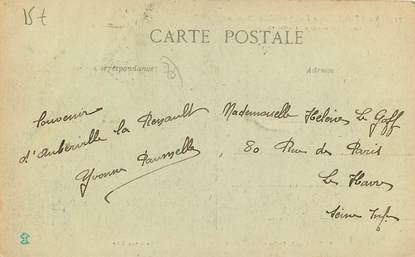 15 t
CARTE POSTALE
Correspondance
Adresse
Souvenir
d'Auberville la Renault
Yvonne
Mademoiselle Hélène Le Goff
80 Rue de Paris
Le Havre
Seine Infre